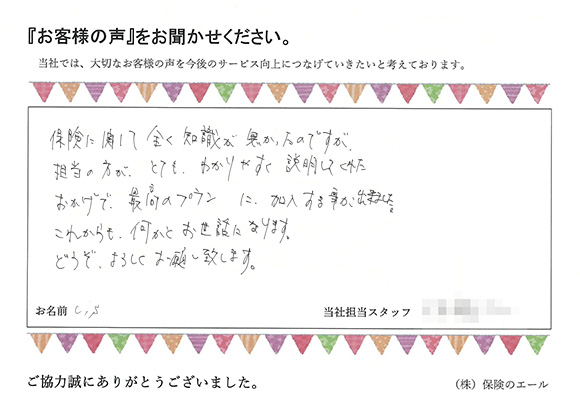 『お客様の声』をお聞かせください。
当社では、大切なお客様の声を今後のサービス向上につなげていきたいと考えております。
保険に関して全く知識が無かったのですが、
担当の方が、とても、わかりやすく説明してくれた
おかげで、最高のプランに、加入する事が出来ました。
これからも、何かとお世話になります。
どうぞ、よろしくお願い致します。
お名前
当社担当スタッフ
ご協力誠にありがとうございました。
（株）保険のエール